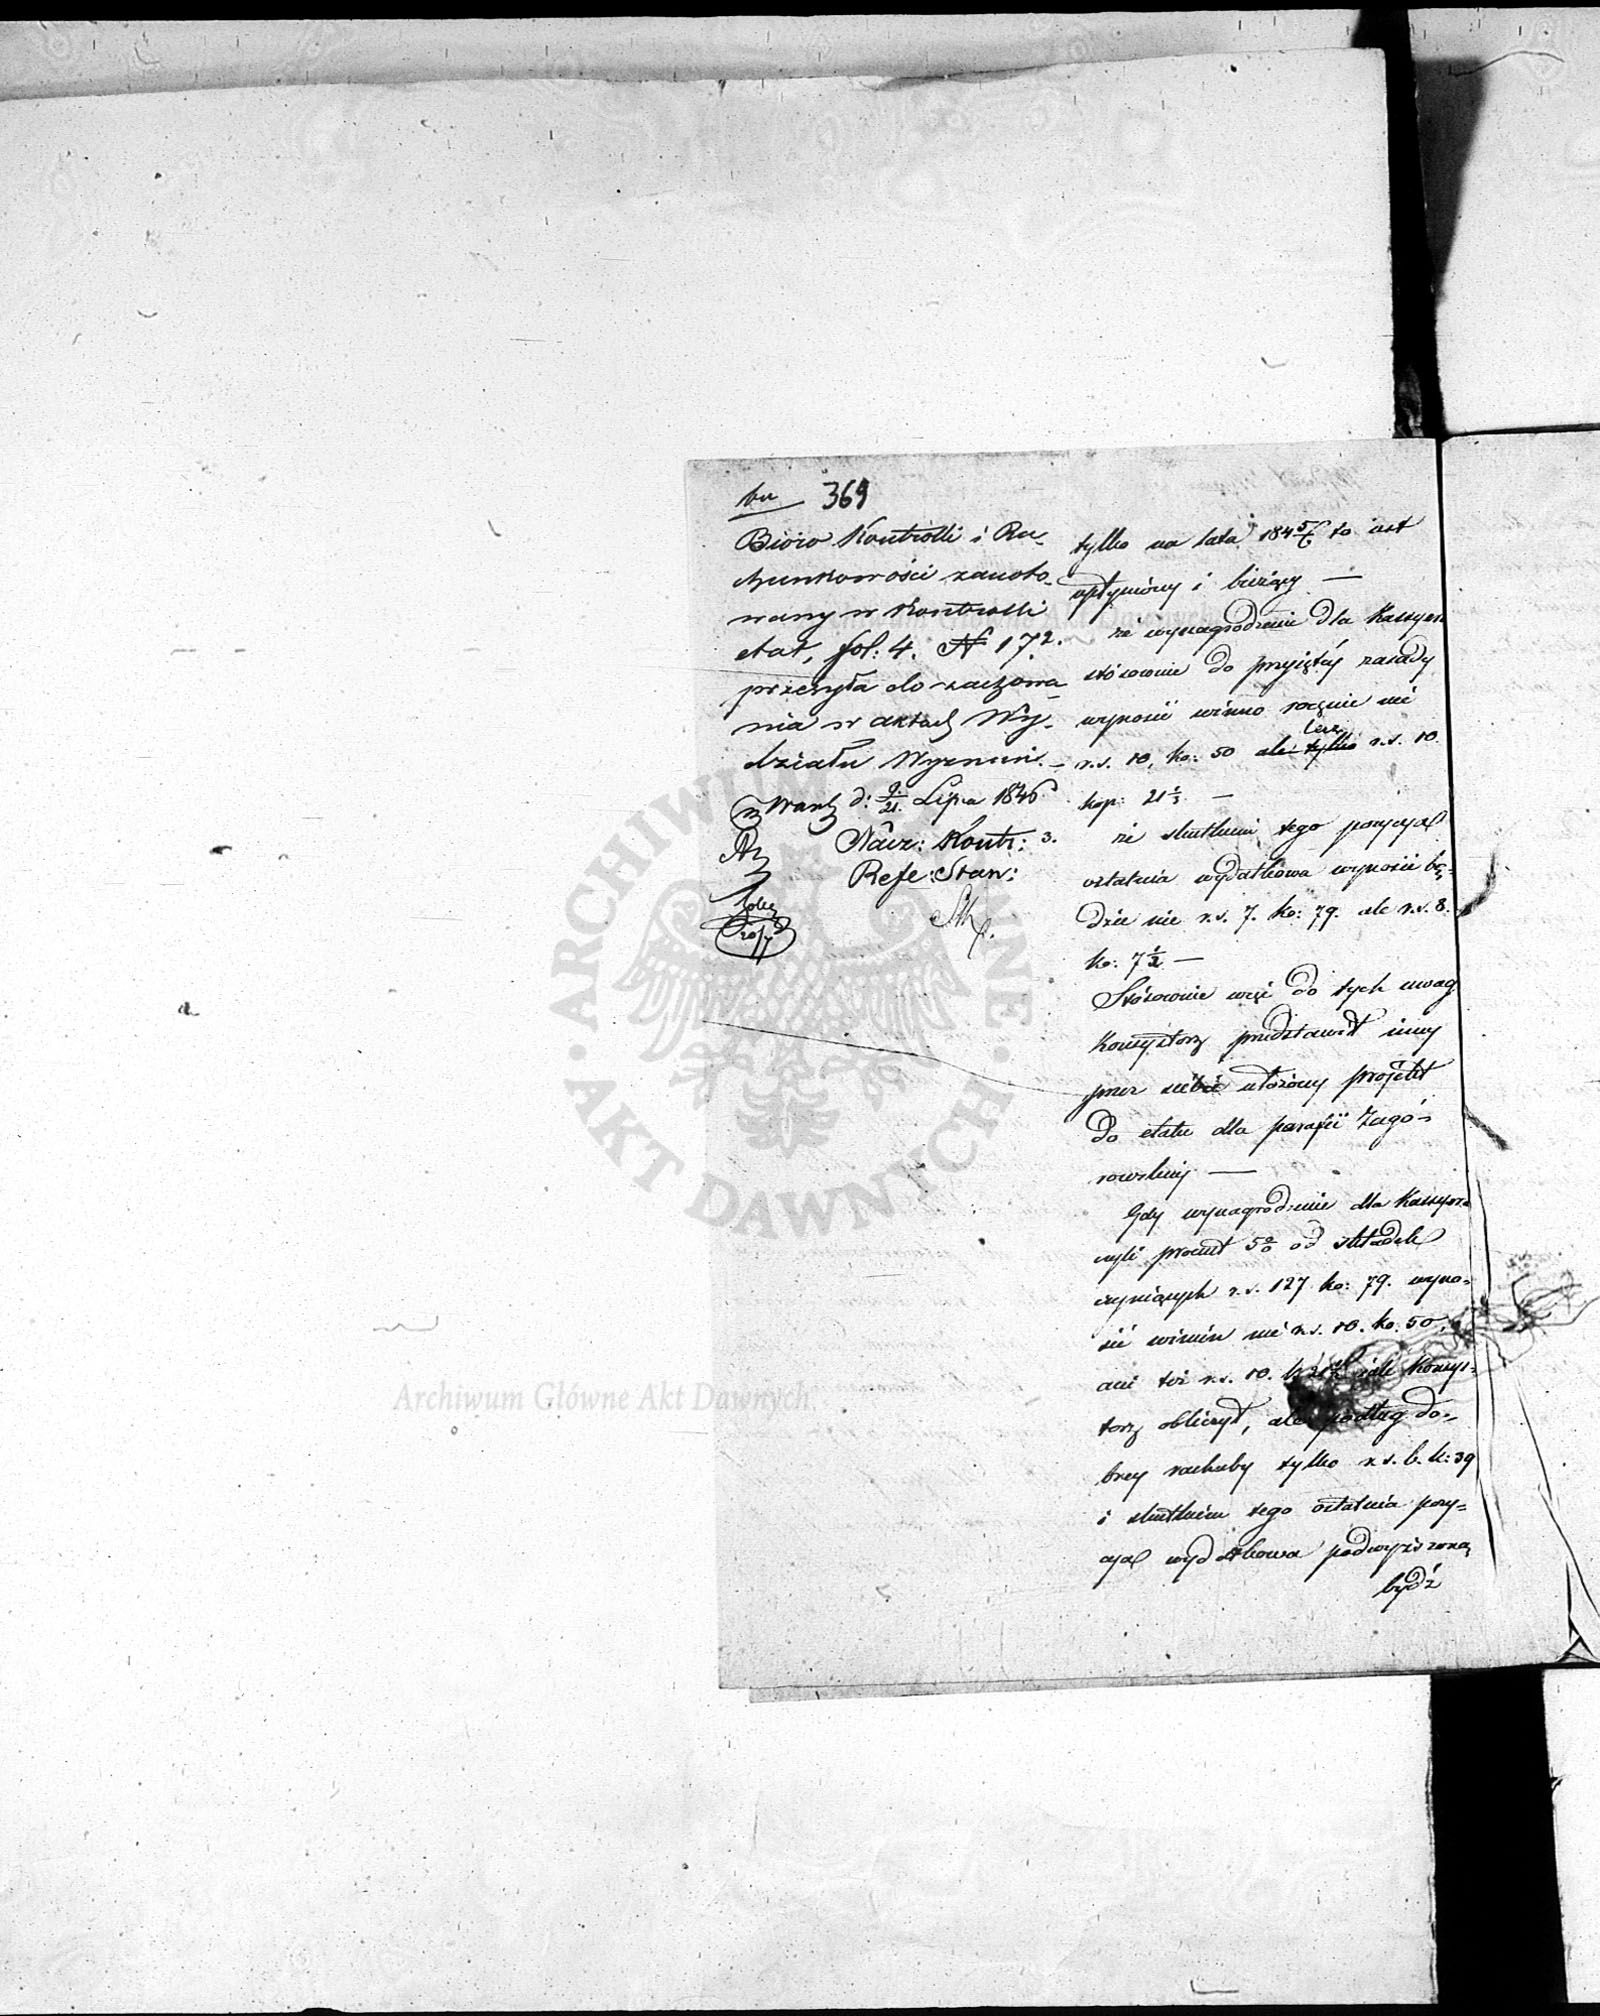 369
Bióro Kontrolli i Ra-
chunkowości zanoto-
wany w Kontrolli
etat, fol: 4. N 172.
przesyła do zachowa-
nia w aktach Wy-
działu Wyznań. -
w Warsz d: 9/21. Lipca 1846
Nacz: Kontr: 3.
Refe: Stan:
tylko na lata 1845/6 to iest
upłyniony i bieżący —
że wynagrodzenie dla Kassyera
stósownie do przyiętéy zasady
wynosić winno rocznie nie
r.s. 10, ko: 50 ale tylko lecz r.s. 10.
kop: 21 —
że skutkiem tego pozycya
ostatnia wydatkowa wynosić bę-
dzie nie r.s. 7. ko: 79. ale r.s. 8.
ko: 7½ —
Stósownie więc do tych uwag
Konsystorz przedstawił inny
przez siebie ułożony projekt
do etatu dla parafii Zagó-
rowskiey —
Gdy wynagrodzenie dla Kassyera
czyli procent 5% od składek
czyniących r.s. 127 ko: 79. wyno-
sić winien nie r.s. 10. ko. 50,
ani też r.s. 10. k 21 jak Konsys-
torz obliczył, ale podług do-
brey rachuby tylko r.s. 6. k: 39
i skutkiem tego ostatnia pozy-
cya wydatkowa podwyższoną
bydź
Archiwum Główne Akt Dawnych
ARCHIWUM GŁÓWNE · AKT DAWNYCH ·